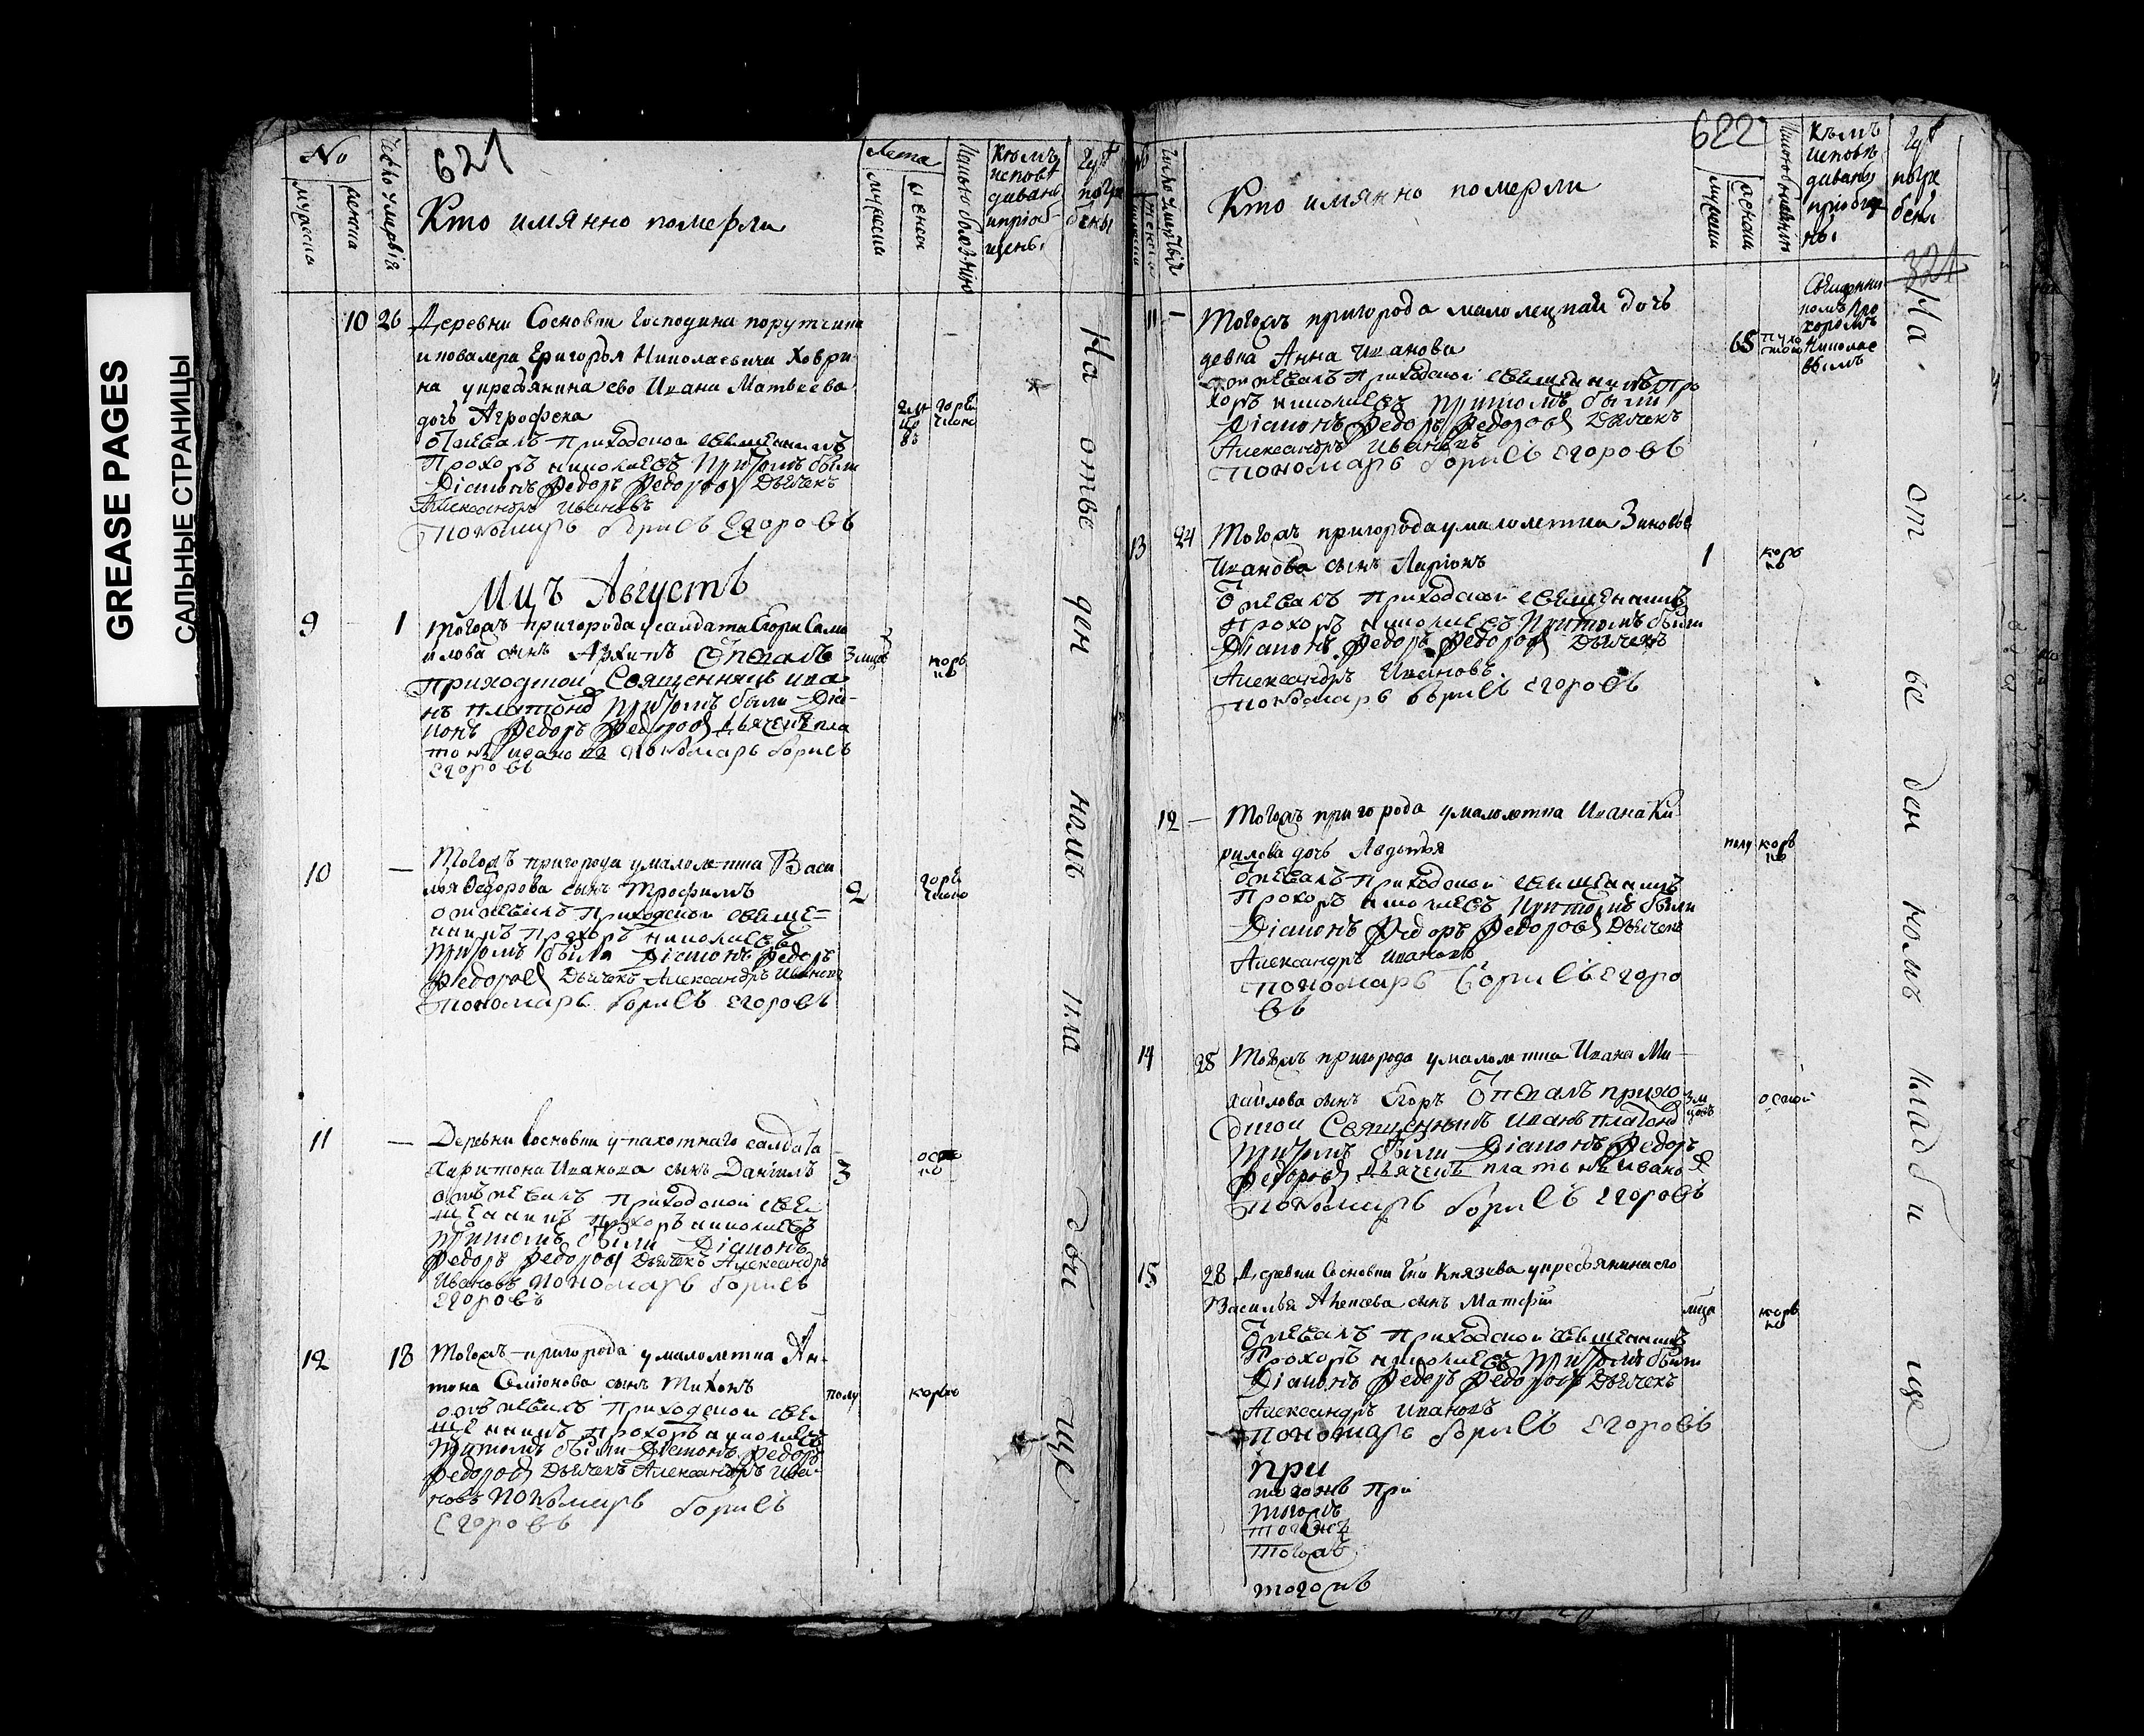 GREASE PAGES
САЛЬНЫЕ СТРАНИЦЫ
621
№
мужеска
женска
Число умертвія
Кто имянно померли
Лета
мужеска
женска
Какою болезнію
Кѣмъ
исповѣ
дываны
и приоб-
щены
Гдѣ
погре
бены
10 26 Деревни Сосновки Господина порутчика
и ковалера Григорья Николаевича Ховри-
на у крестьянина ево Ивана Матвеева
дочь Агрофена
горе
Отпевалъ Приходской священникъ
Прохоръ николаевъ При томъ были
Діаконъ Федоръ Федоровъ Дьячекъ
Александръ Ивановъ
пономарь борисъ Егоровъ
Мцъ Августъ
9 1 Тогожъ пригорода у салдата Егора Само
илова сынъ Архипъ Отпевалъ 3 мцовъ
корь
ю
приходской Священникъ ива
нъ платоновъ При томъ были Діа-
конъ Федоръ Федоровъ дьячекъ пла
тонъ ивановъ пономарь борисъ
егоровъ
10 — Тогожъ пригорода у малолетка Васи
лья Федорова сынъ Трофимъ 2
отпевалъ Приходской свяще-
нникъ Прохоръ николаевъ
При томъ были Діаконъ Федоръ
Федоровъ Дьячекъ Александръ Ивановъ
пономарь борисъ егоровъ
11 — Деревни Сосновки у пахотнаго салдата
Харитона Иванова сынъ Данилъ 3
отпевалъ Приходской свя
щенникъ прохоръ николаевъ
При томъ были Діаконъ
Федоръ Федоровъ Дьячекъ Александръ
Ивановъ пономарь борисъ
егоровъ
12 18 Тогожъ пригорода у малолетка Ан-
тона Семионова сынъ Тихонъ полу корью
отпевалъ Приходской свя
щенникъ прохоръ николаевъ
При томъ были Діаконъ Федоръ
Федоровъ Дьячекъ Александръ Ива-
новъ пономарь борисъ
егоровъ
На отве ден номъ кла дби ще
622
Число умертвія
Кто имянно померли
мужеска
женска
Кѣмъ
исповѣ
дываны
приобще
ны
Гдѣ
погре
бены
324
11 — Тогожъ пригорода малолецкая дочь
девка Анна Иванова 65
Священни
комъ Про
хоромъ
Николае
вымъ
отпевалъ Приходской священникъ Про
хоръ николаевъ При томъ были
Діаконъ Федоръ Федоровъ Дьячекъ
Александръ Ивановъ
пономарь борисъ егоровъ
13 24 Тогожъ пригорода у малолетка Зиновья
Иванова сынъ Ларіонъ 1 корь
ю
Отпевалъ Приходской священникъ
Прохоръ николаевъ При томъ были
Діаконъ Федоръ Федоровъ Дьячекъ
Александръ Ивановъ
пономарь борисъ егоровъ
12 — Тогожъ пригорода у малолетка Ивана Ки
рилова дочь Авдотья полу корь
ю
Отпевалъ Приходской священникъ
Прохоръ николаевъ При томъ были
Діаконъ Федоръ Федоровъ Дьячекъ
Александръ Ивановъ
пономарь борисъ егоро
въ
14 25 Тогожъ пригорода у малолетка Ивана Ми-
хайлова сынъ Егоръ Отпевалъ прихо 3 м
цовъ
оспой
дской Священникъ Иванъ платоновъ
При томъ были Діаконъ Федоръ
Федоровъ дьячекъ платонъ ивановъ
пономарь борисъ егоровъ
15 28 Деревни Сосновки Князева у крестьянина его
Василья сынъ Матфей мца корь
ю
Отпевалъ Приходской священникъ
Прохоръ николаевъ При томъ были
Діаконъ Федоръ Федоровъ Дьячекъ
Александръ Ивановъ
пономарь борисъ егоровъ
при
При
тогожъ
тогожъ
тогожъ
тогожъ
На от ве ден номъ кладби ще